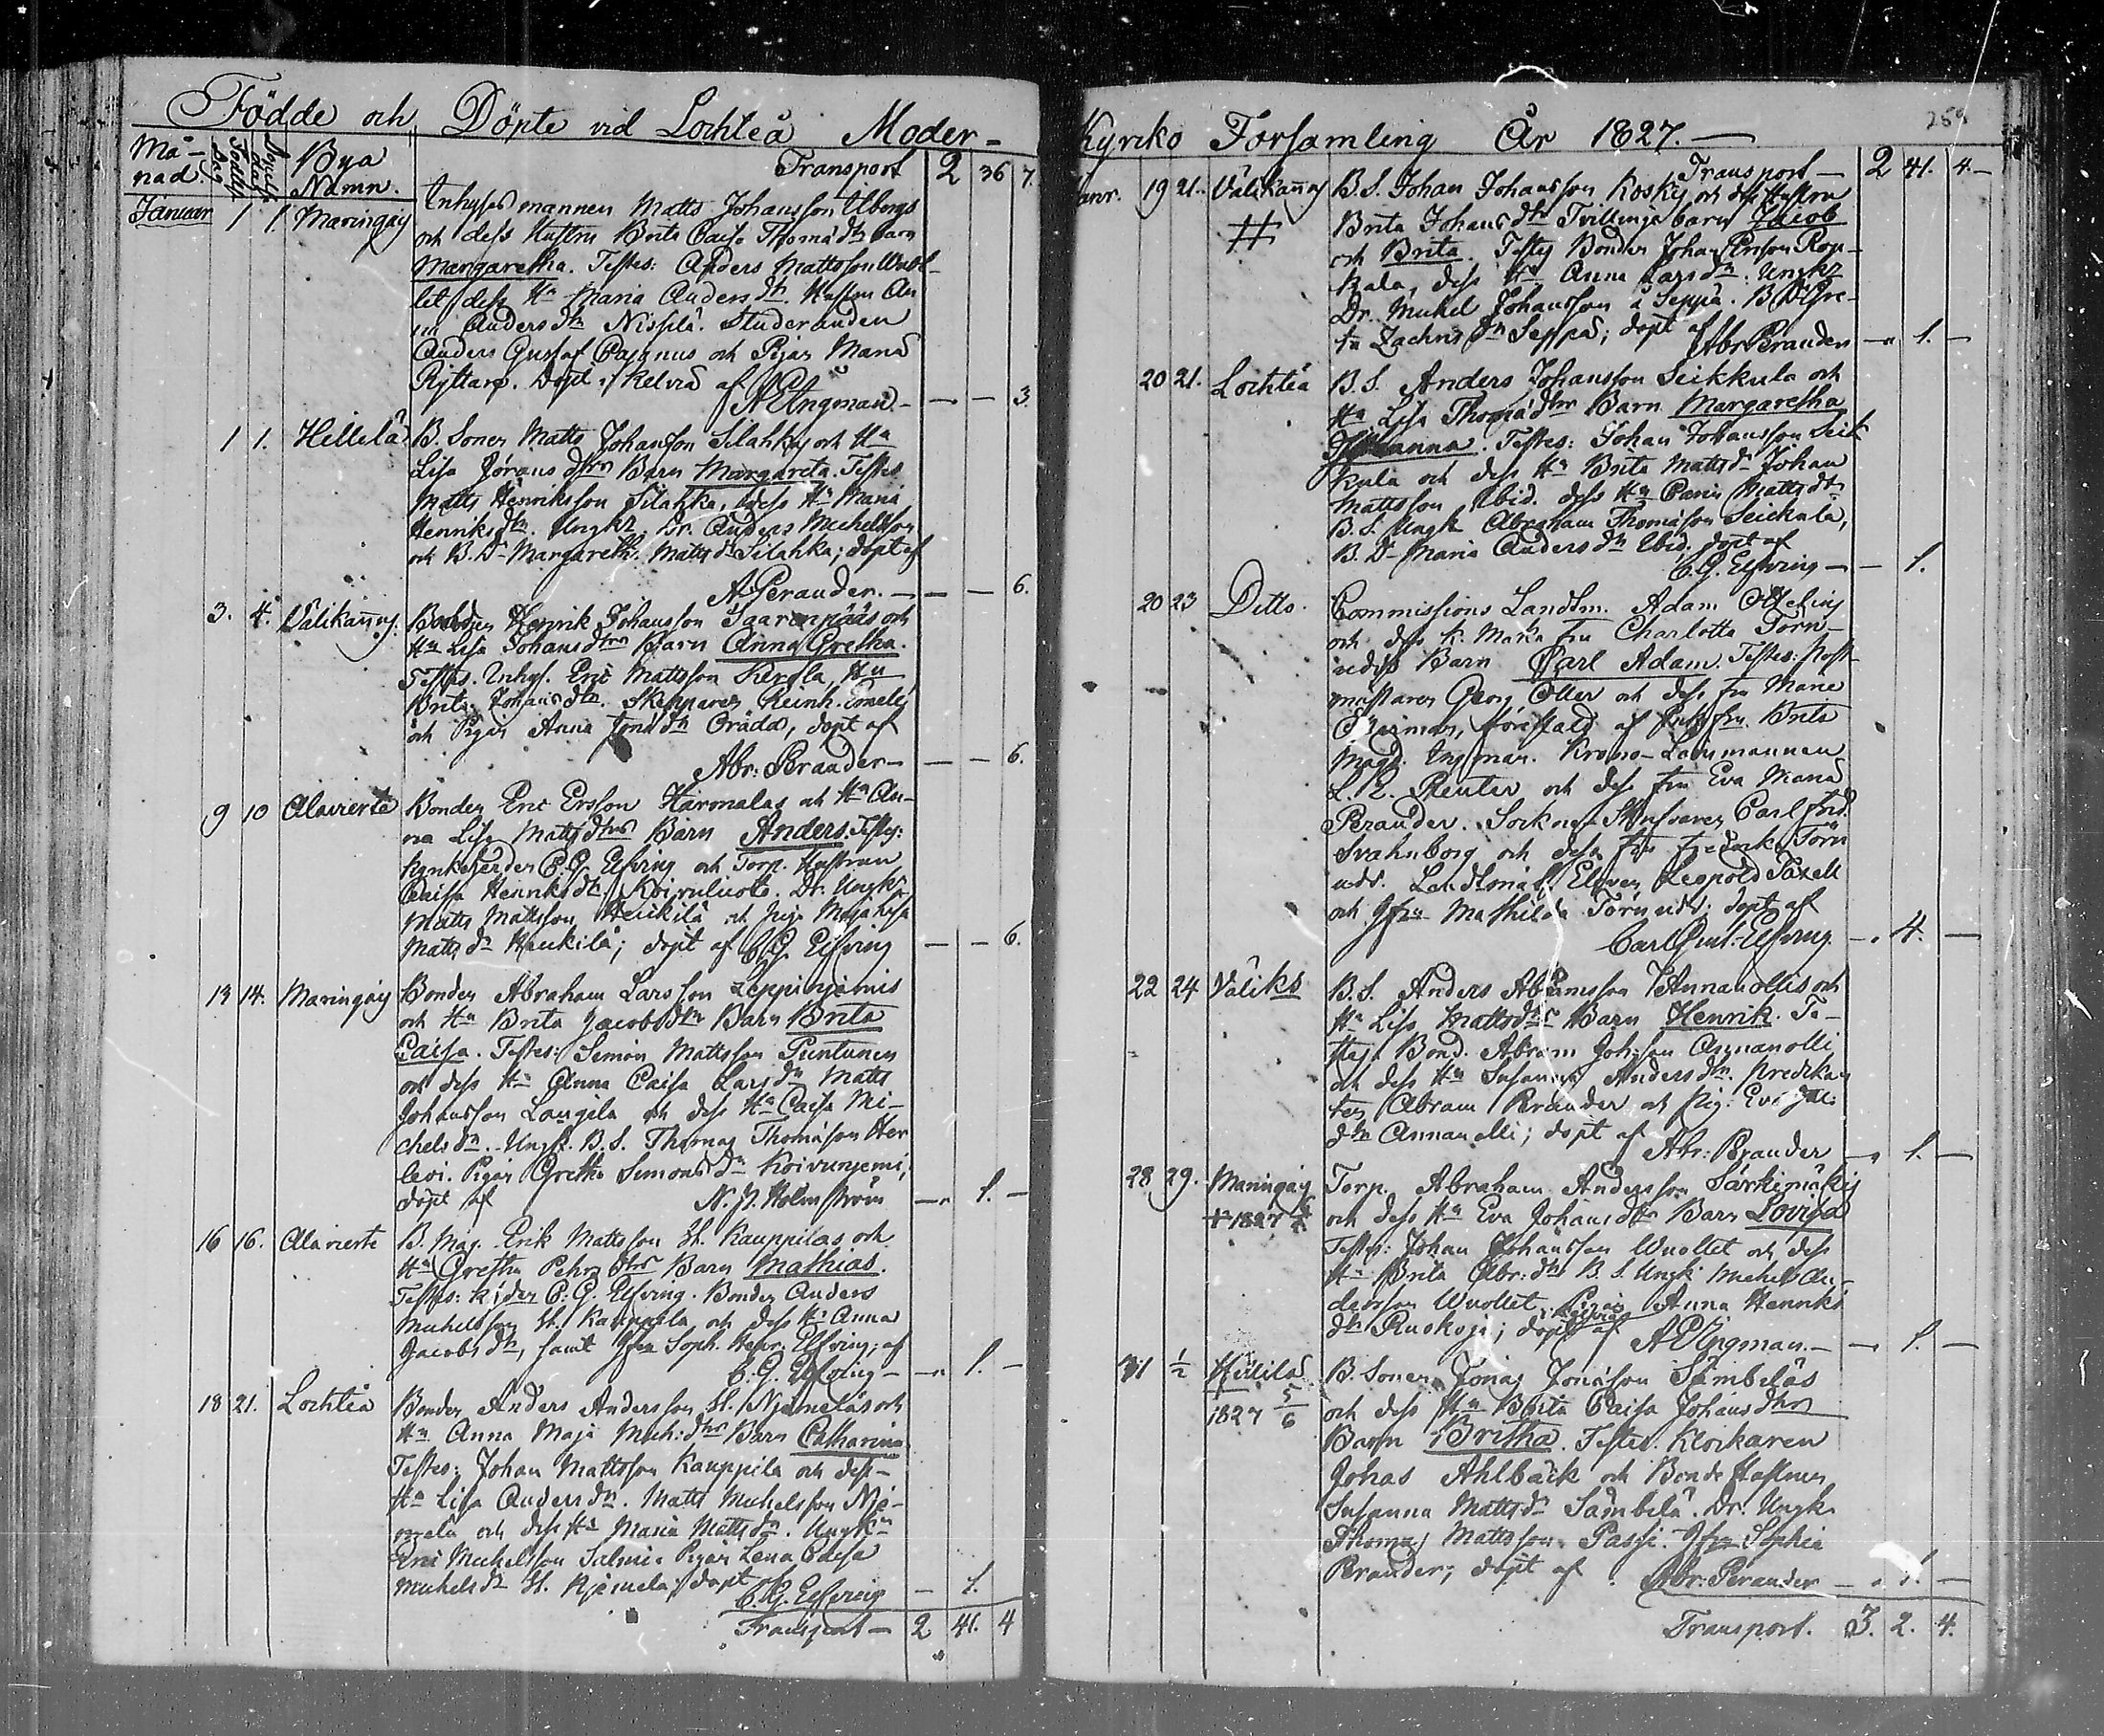 Födde och Döpte vid Lochteå Moder-
Må-
nad.
Födelse
Dag
Bya
Namn.
Transport 2 36 7.
Januar 1 1. Maringay Inhyses mannen Matts Johansson Ulbergs
och dess Hustru Brita Caisa Thomæ dtrs Barn
Margaretha. Testes: Anders Mattsson Wuol-
let, dess Hu Maria Anders dtr. Hustru An
na Anders dtr Nissilä. Studeranden
Anders Gustaf Pazonus och Pigan Maria
Ryttare. Döpt i Kelviå af
A E Ingman. — — 3.
1 1. Hillilä B. Sonen Matts Johansson Silahkas och Hu
Lisa Jörans dtrs Barn Margareta. Testes
Matts Henriksson Silahka, dess Hu Maria
Henriks dtr. Ungk. Dr. Anders Michelsson
och B. Dr Margareth. Matts dr Silahka; döpt af
A. Perander. — — — 6.
3. 4. Välikannus. Bonden Henrik Johansson Saarenpääs och
Hu Lisa Johans dtrs Barn Anna Gretha.
Testes. Inhys. Eric Mattsson Kerola, Hu
Brita Johans dtr. Skepparen Reinh.
och Pigan Anna Jonæ dtr döpt af
Abr: Perander — — — 6.
9 10 Alavierte Bonden Eric Ersson Haromalas och Hu An-
na Lisa Matts dtrs Barn Anders. Testes:
Kyrkoherden C. G. Elfving och Torp. Hustrun
Caisa Henriks dtr Koivuluoto. Dr. Ungk.
Matts Mattsson Heikilä och Piga Maja Lisa
Matts dr Heikilä; döpt af C. G. Elfving — — 6.
13 14. Maringay Bonden Abraham Larsson Leppiniemis
och Hu Brita Jacobs dtrs Barn Brita
Caisa. Testes: Simon Mattsson Puntunen
och dess Hu Anna Caisa Lars dtr Matts
Johansson Laugila och dess Hu Caisa Mi-
chels dtr. Ungk. B. S. Thomas Thomasson Her
levi. Pigan Gretha Simons dtr Koivuniemi;
döpt af N. J. Holmström — 1. —
16 16. Alavierte B. Mag. Erik Mattsson St. Kauppilas och
Hu Gretha Pehrs dtrs Barn Mathias.
Testes: K:der C. G. Elfving. Bonden Anders
Michelsson St. Kauppila och dess Hu Anna
Jacobs dtr, samt Jfru Soph. Elfving; af
C. G. Elfving — 1. —
18 21. Lochteå Bonden Anders Andersson St. Njemeläs och
Hu Anna Maja Mich: dtrs Barn Catharina
Testes: Johan Mattsson Kauppila och dess-
Hu Lisa Anders dtr. Matts Michelsson Nje-
mela och dess Hu Maria Matts dr. Ungk
Eric Michelsson Salmi. Pigan Lena Caisa
Michels dr St. Njemela; döpt af
C. G. Elfving — 1.
Transport — 2 41. 4
Kyrko Forsamling År 1827. —
259
Transport — 2 41. 4. —
Janr. 19 21. Välikannus B. S. Johan Johansson Koskis och dess Hustru
Brita Johans dtrs Tvillinge barn Jacob
och Brita. Testes Bonden Johan Ersson Rou-
kala, dess Hu Anna Lars dtr. Ungk
Dr. Michel Johansson å Seppä. B. Dr Gre-
ta Zachris dr Seppä; döpt af
Abr Perander — 1. —
20 21. Lochteå B. S. Anders Johansson Seikkula och
Hu Lisa Thomæ dtrs Barn Margaretha
Johanna. Testes: Johan Johansson Seik
kula och dess Hu Brita Matts dr Johan
Mattsson Ibid. dess Hu Carin Matts dtr
B. S. Ungk Abraham Thomæson Seickula,
B. D. Maria Anders dtr Ibid. döpt af
C. G. Elfving — — 1.
20 23 Ditto. Commissions Landtm. Adam
och dess k. Maka Fru Charlotta Törn-
udds Barn Carl Adam. Testes: Post-
mästaren Georg Öller och dess Fru Marie
föreställd af Fru Brita
Magd. Ingman. Krono-Länsmannen
L. E. Reuter och dess Fru Eva Maria
Perander. Carl Fred.
Svahnborg och dess Fru Fredrika Törn
udd. Landtmät. Eleven Leopold Taxell
och Jfru Mathilda Törnudd; döpt af
Carl Gust. Elfving. — 4. —
22 24 Väliks B. S. Anders Abramsson Annanollis och
Hu Lisa Mattsdtrs Barn Henrik. Te-
stes: Bond. Abram Johsson Annanolli
och dess Hu Susanna Anders dtr. Predikan
ten Abram Perander och Pig. Eva Jac:
dtr Annanolli; döpt af
Abr: Perander — 1. —
28 29. Maringay Torp. Abraham Andersson Särkimäkis
† 1827 och dess Hu Eva Johans dtrs Barn Lovisa
Testes: Johan Johansson Wuollet och dess
Hu Brita Abr: dtr B. S. Ungk Michel An-
dersson Wuollet. Pigan Anna Henriks
dtr Ruokoja; döpt i Kelviå af A E Ingman. — 1. —
31 1/2 Hillilä B. Sonen Jonas Jonæson Sämbeläs
1827 5/6 och dess Hu Brita Caisa Johans dtrs
Barn Britha. Testes. Klockaren
Johas Ahlbäck och Bonde Hustrun
Susanna Matts dr Sämbelä. Dr. Ungk.
Thomas Mattsson Passi. Jfru Sophia
Perander; döpt af Abr: Perander — 1. —
Transport. 3. 2. 4.